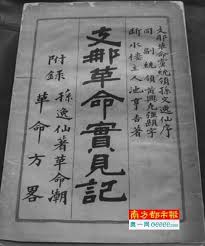 支那革命黨統領孫文逸仙序
同副統領黃興克強題字
斷水樓主人池亨吉著
支那革命實見記
附錄
孫逸仙著革命潮
革命方畧
南方都市报
奥一网 oeeee.com